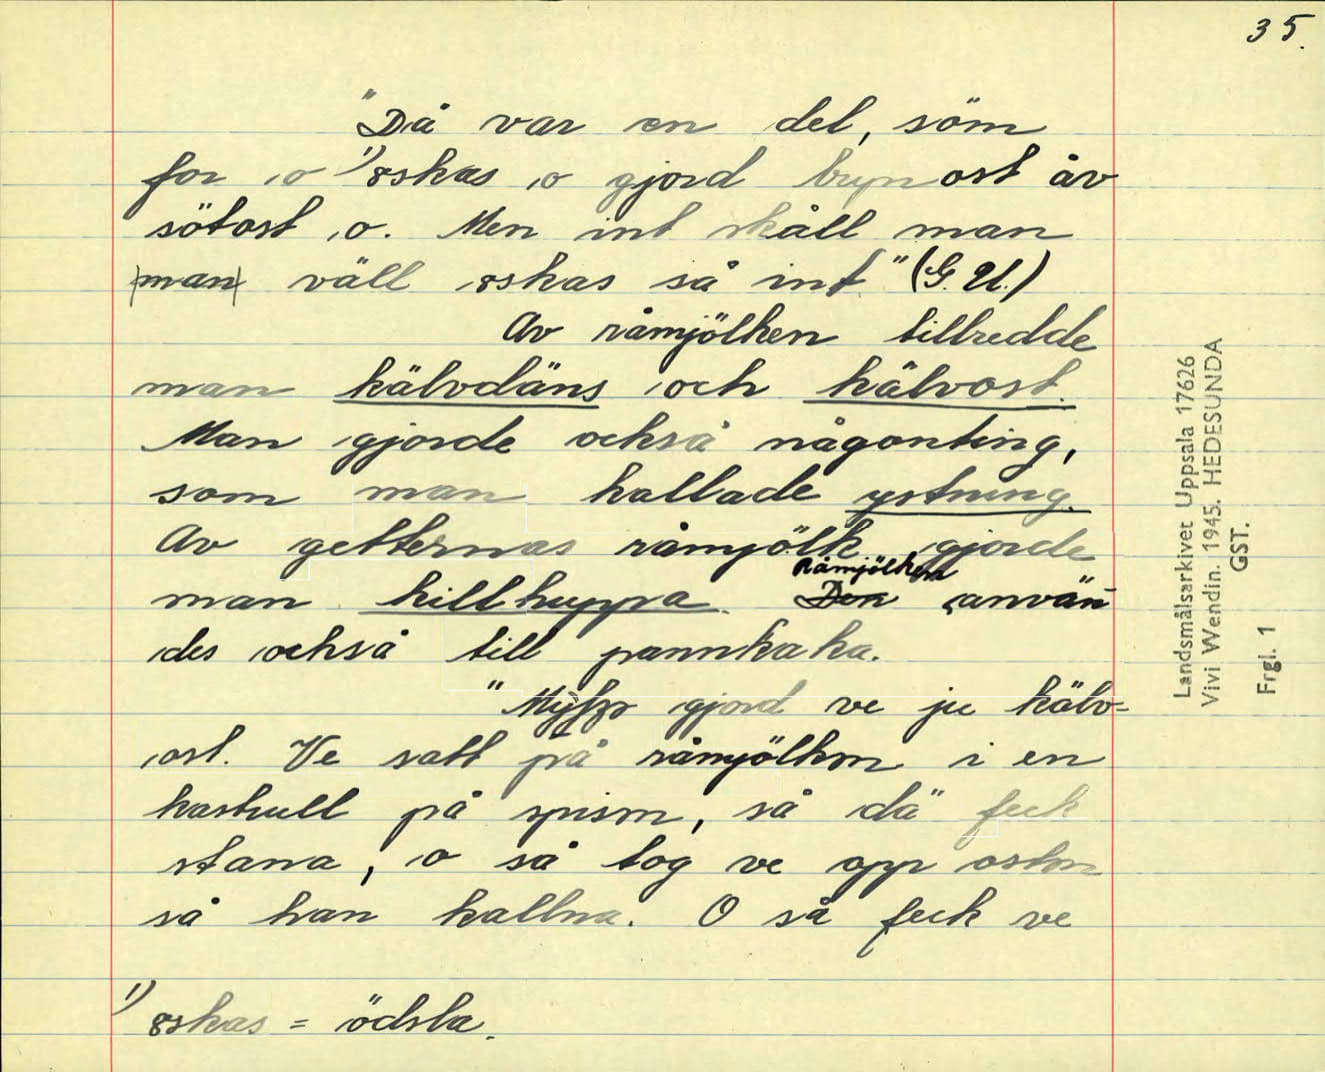 35.
"Då var en del, söm
for o ¹⁾ȣskas o gjord brynost åv
sötost o. Men int skåll man
|man| väll ȣskas så int" (G. U.)
Av råmjölken tillredde
man kälvdäns och kälvost.
Man gjorde också någonting,
som man kallade ystning.
Av getternas råmjölk gjorde
man killhuppa. Råmjölken använ
des också till pannkaka.
" gjord ve ju kälv-
ost. Ve satt på råmjölkm i en
kastrull på spism, så dä feck
stanna, o så tog ve opp ostm
så han kallna. O så feck ve
¹⁾ ȣskas = ödsla.
Landsmålsarkivet Uppsala 17626
Vivi Wendin. 1945. HEDESUNDA
GST.
Frgl. 1